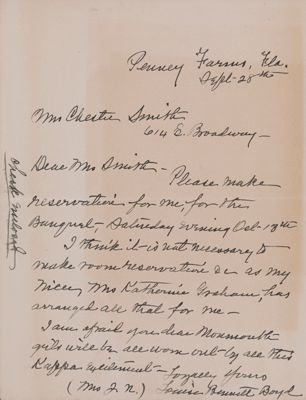 Penney Farms, Fla.
Sept-28th
Mrs Chester Smith
614 E. Broadway-
Dear Mrs Smith-
Please make
reservation for me, for the
Banquet-, Saturday evening Oct-13th
I think it is not necessary to
make room reservation &c as my
niece, Mrs Katherine Graham, has
arranged all that for me-
I am afraid you dear Monmouth
girls will be all worn out by all this
Kappa excitement- Loyally Yours
(Mrs J. N.) Louise Bennett Boyd
check enclosed